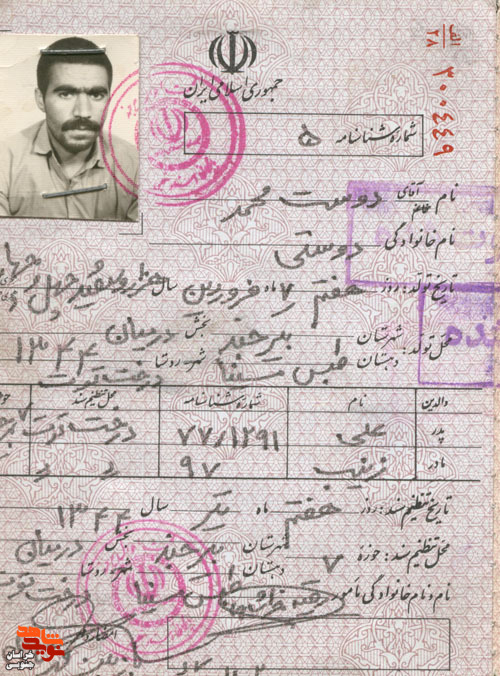 الف
۲۸
۳۰۰۴۴۹
جمهوری اسلامی ایران
شماره شناسنامه ۵
نام آقای دوست محمد
خانم
نام خانوادگی دوستی
تاریخ تولد: روز هفتم ۷ ماه فروردین سال هزار و سیصد و چهل و چهار
محل تولد: شهرستان بیرجند بخش درمیان ۱۳۴۴
دهستان طبس مسینا شهر روستا درخت توت
والدین نام شماره شناسنامه محل تنظیم سند
پدر علی ۷۷/۱۲۹۱ درخت توت
مادر زینب ۹۷ " "
تاریخ تنظیم سند: روز هفتم ماه تیر سال ۱۳۴۴
محل تنظیم سند: حوزه ۷ شهرستان بیرجند بخش درمیان
دهستان طبس شهر روستا درخت توت
نام و نام خانوادگی مأمور
نوید شاهد
خراسان جنوبی